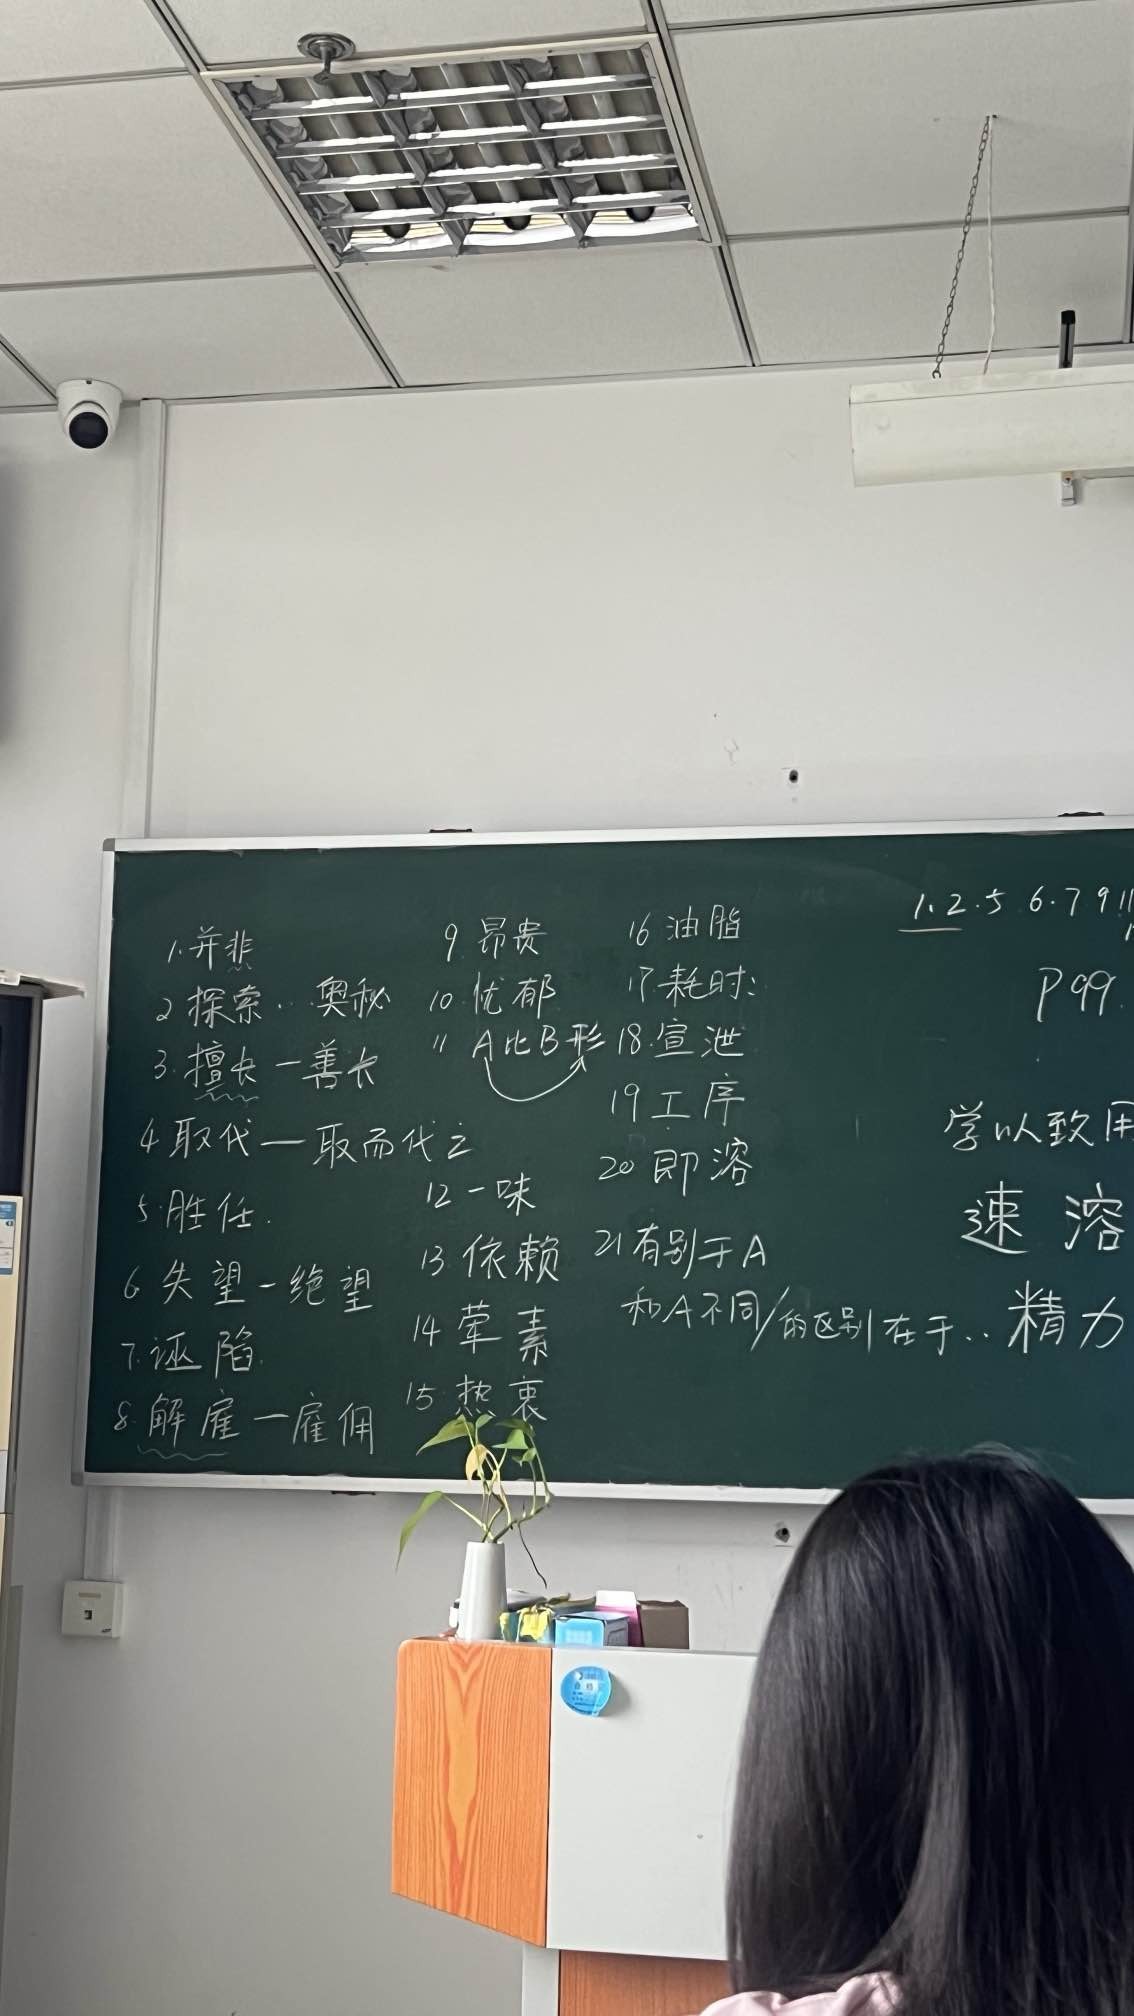 1. 并非
2 探索...奥秘
3. 擅长 — 善长
4 取代 — 取而代之
5. 胜任.
6 失望 - 绝望
7. 诬陷.
8. 解雇 — 雇佣
9. 昂贵
10. 忧郁
11 A比B形
12 一味
13 依赖
14 荤素
15. 热衷
16 油脂
17. 耗时:
18. 宣泄
19 工序
20 即溶
21 有别于A
和A不同/的区别在于..
1. 2. 5 6. 7 9 11
P99.
学以致用
速溶
精力